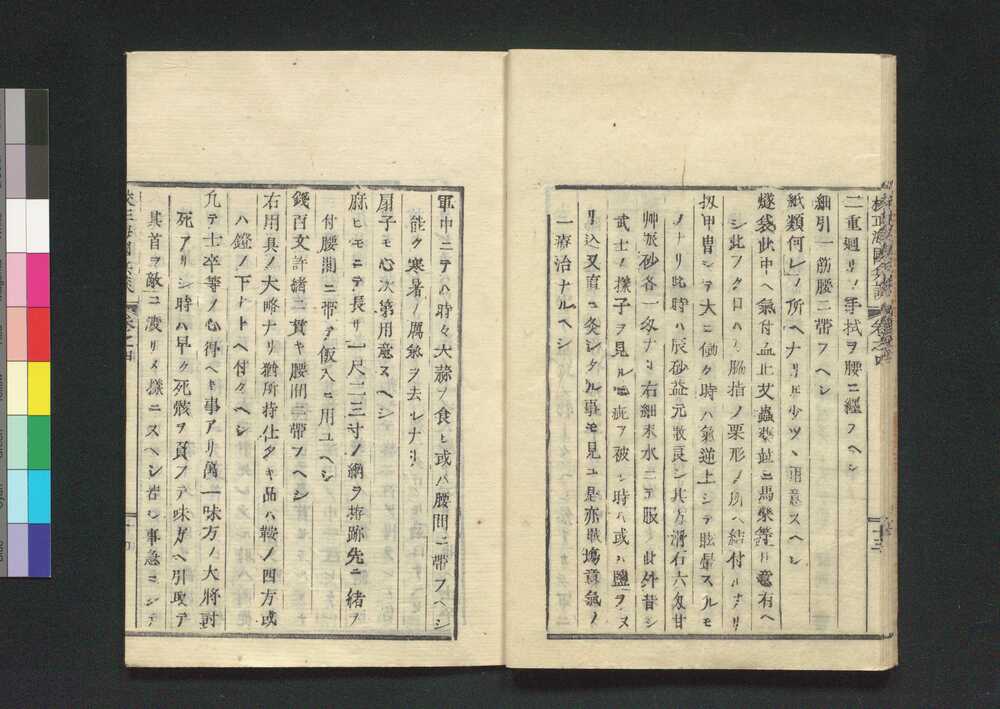 校正海國兵談 卷之四 十三
二重廻リノ手拭ヲ腰ニ纒フヘシ
細引一筋腰ニ帶フヘシ
紙類何レノ所ヘナリ𪜈少ツヽ用意スヘシ
燧袋此中ヘ氣付血止艾蟲藥並ニ馬藥等用意有ヘ
シ此フクロハ脇指ノ栗形ノ所ヘ結付ルナリ
扨甲冑シテ大ニ働ク時ハ氣逆上シテ眩暈スルモ
ノナリ此時ハ辰砂益元散良シ其方滑石六匁甘
艸辰砂各一匁ナリ右細末水ニテ服ス此外昔シ
武士ノ様子ヲ見ルニ疵ヲ破シ時ハ或ハ鹽ヲヌ
リ込又直ニ灸シタル事モ見ユ是亦戰塲意氣ノ
一療治ナルヘシ
軍中ニテハ時々大蒜ヲ食ヒ或ハ腰間ニ帶フヘシ
能ク寒暑ノ厲氣ヲ去レナリ
扇子モ心次第用意スヘシ
麻ヒモニテ長サ一尺二三寸ノ網ヲ拵跡先ニ緒ヲ
付腰間ニ帶テ飯入ニ用ユヘシ
錢百文許緒ニ貫キ腰間ニ帶フヘシ
右用具ノ大略ナリ猶所持仕タキ品ハ鞍ノ四方或
ハ鐙ノ下トヘ付クヘシ
凡テ士卒等ノ心得ヘキ事アリ萬一味方ノ大將討
死アリシ時ハ早ク死骸ヲ負フテ味方ヘ引取テ
其首ヲ敵ニ渡リヌ樣ニスヘシ若シ事急ニシテ
卷之四